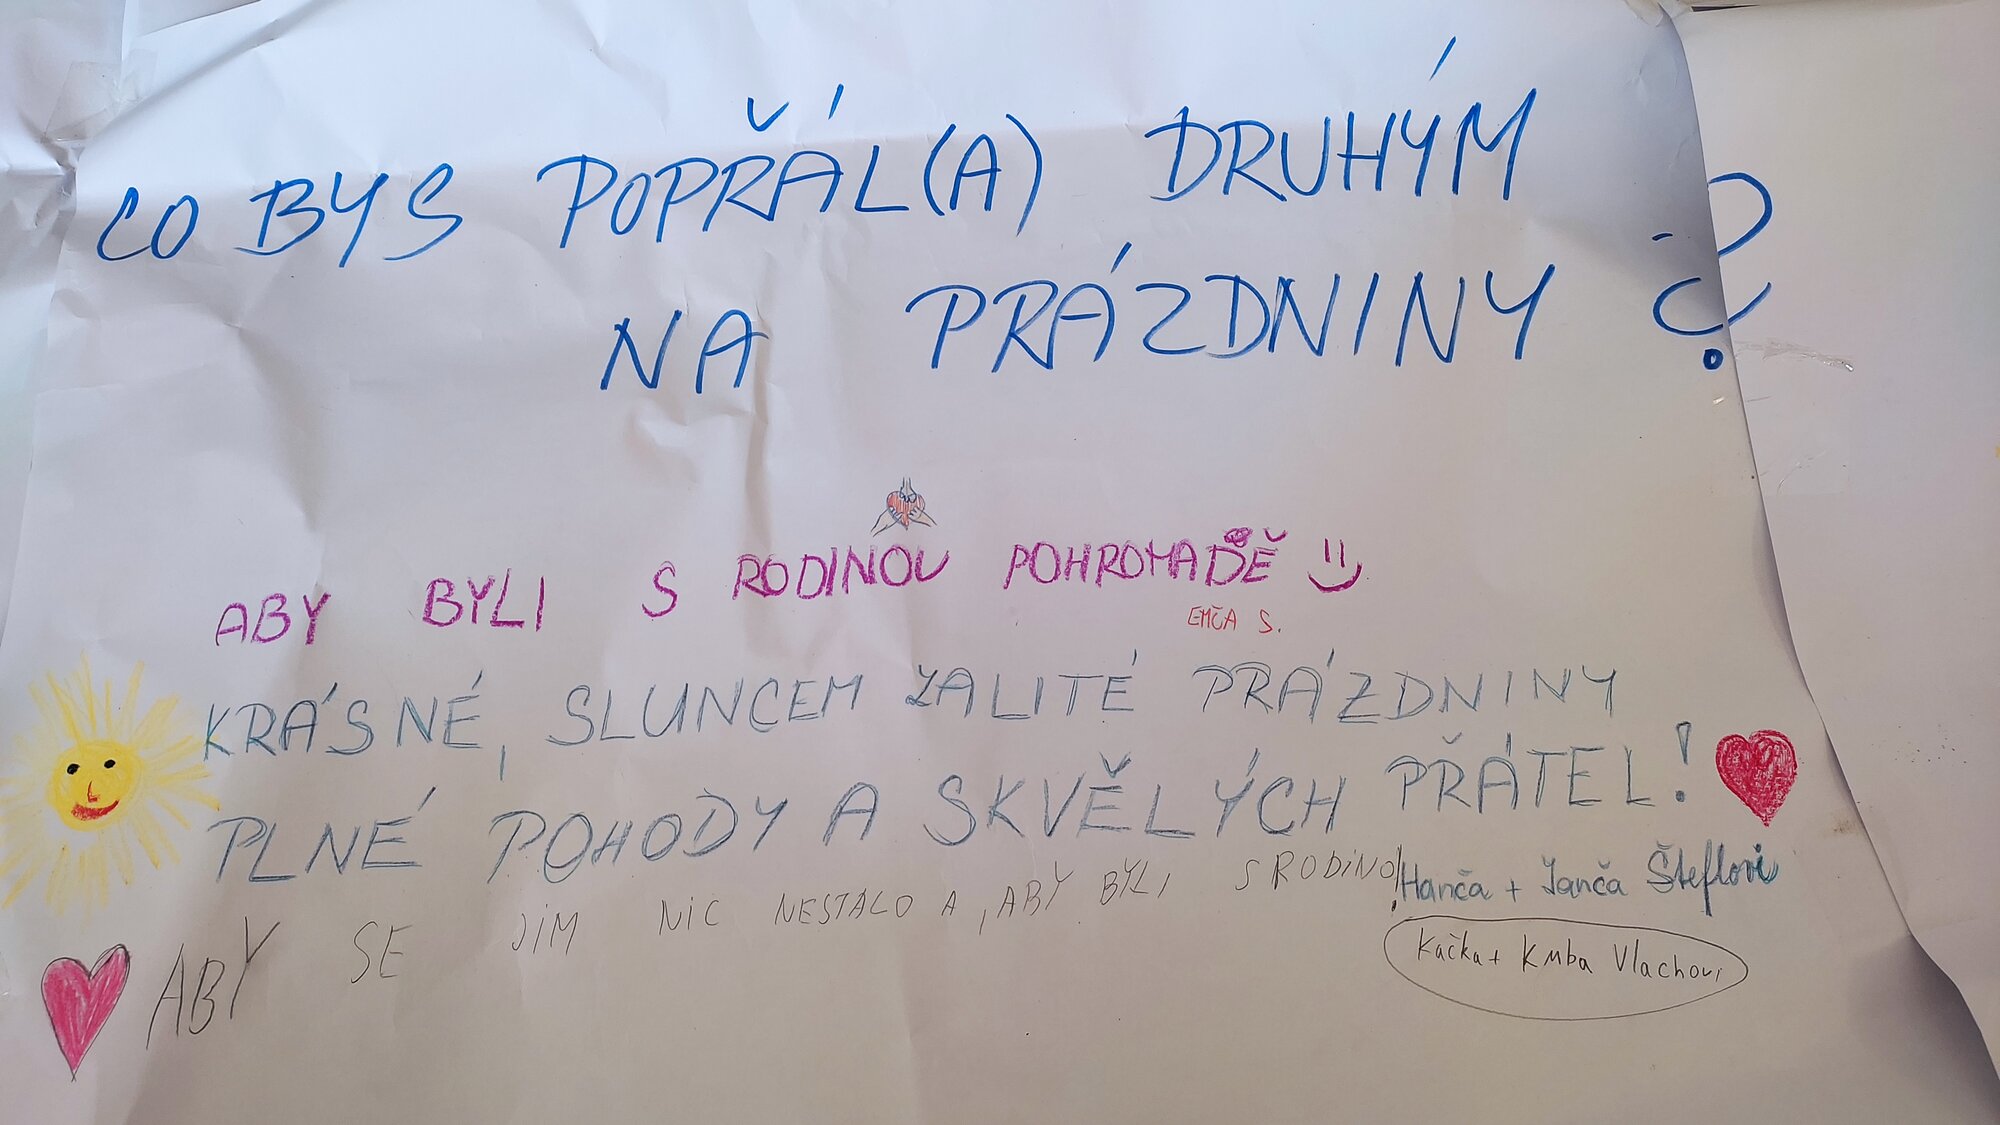 CO BYS POPŘÁL(A) DRUHÝM
NA PRÁZDNINY ?
ABY BYLI S RODINOU POHROMADĚ
EMČA S.
KRÁSNÉ, SLUNCEM ZALITÉ PRÁZDNINY
PLNÉ POHODY A SKVĚLÝCH PŘÁTEL!
Hanča + Janča Šteflovi
ABY SE JIM NIC NESTALO A, ABY BYLI S RODINO!
Kačka + Kuba Vlachovi